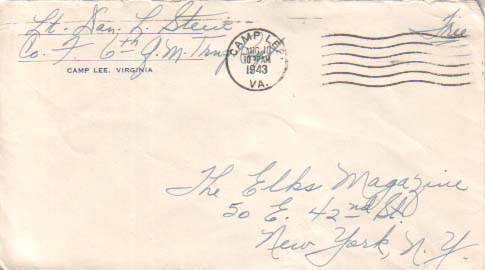 Lt. Dan. L.
Co. F. 6th Q.M. Trng
CAMP LEE, VIRGINIA
CAMP LEE
AUG 10
10 AM
1943
VA.
Free
The Elks Magazine
50 E. 42nd St.
New York, N.Y.